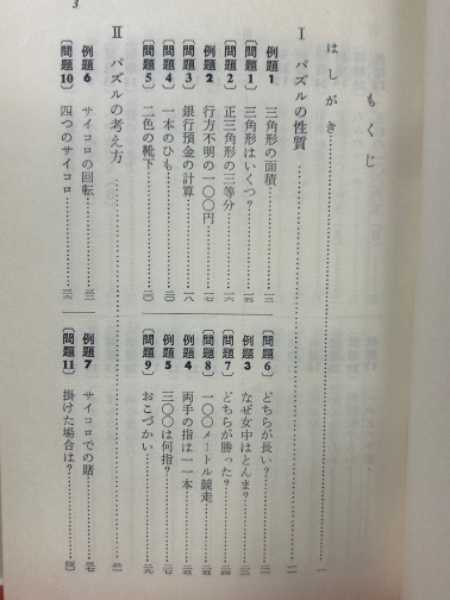 もくじ
はしがき……一
Ⅰ パズルの性質……
例題1 三角形の面積……一三
〔問題1〕 三角形はいくつ？……一五
〔問題2〕 正三角形の三等分……一六
例題2 行方不明の一〇〇円……一七
〔問題3〕 銀行預金の計算……一八
〔問題4〕 一本のひも……二〇
〔問題5〕 二色の靴下……二〇
〔問題6〕 どちらが長い？……
例題3 なぜ女中はとんま？……
〔問題7〕 どちらが勝った？……二四
〔問題8〕 一〇〇メートル競走……二五
例題4 両手の指は一一本……二五
例題5 三〇〇は何指？……
〔問題9〕 おこづかい……二九
Ⅱ パズルの考え方……
例題6 サイコロの回転……
〔問題10〕 四つのサイコロ……
例題7 サイコロでの賭……
〔問題11〕 掛けた場合は？……
3